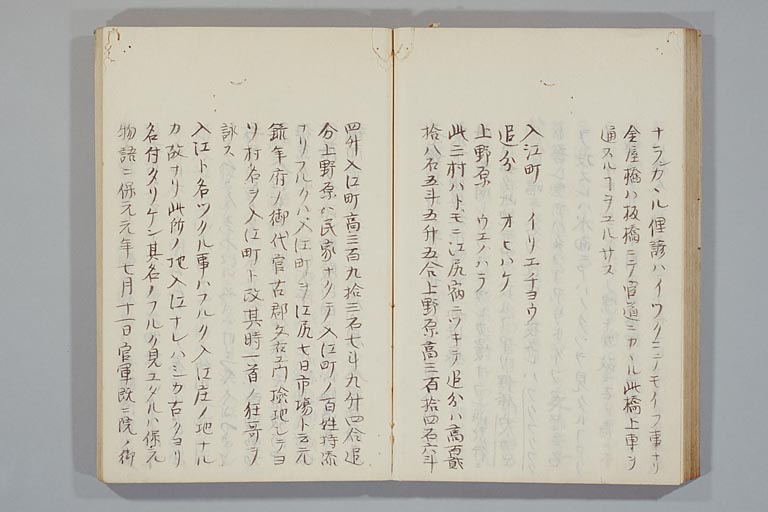 ナランカ、ル俚諺ハイツクニニノモイフ事ナリ
金屋橋ハ板橋ニテ官道ニカ、ル此橋上車ヲ
通スルヿヲユルサス
入江町 イリエチヨウ
追分 オヒハケ
上野原 ウエノハラ
此三村ハトモニ江尻宿ニツキテ追分ハ高百貳
拾八石五斗五升五合上野原高三百拾四石六斗
四升入江町高三百九拾三石七斗九升四合追
分上野原ハ民家ナクテ入江町ノ百姓持添
ナリフルクハ入江町ヲ江尻七日市場ト云元
録年府ノ御代官古郡文右エ門撿地シテヨ
リ村名ヲ入江町ト改其時一首ノ狂哥ヲ
詠ス
入江ト名ツクル事ハフルク入江庄ノ地ナル
カ故ナリ此所ノ地入江ナレハシカ古クヨリ
名付タリケン其名ノフルク見エタルハ保元
物語ニ保元元年七月十一日官軍既ニ院ノ御